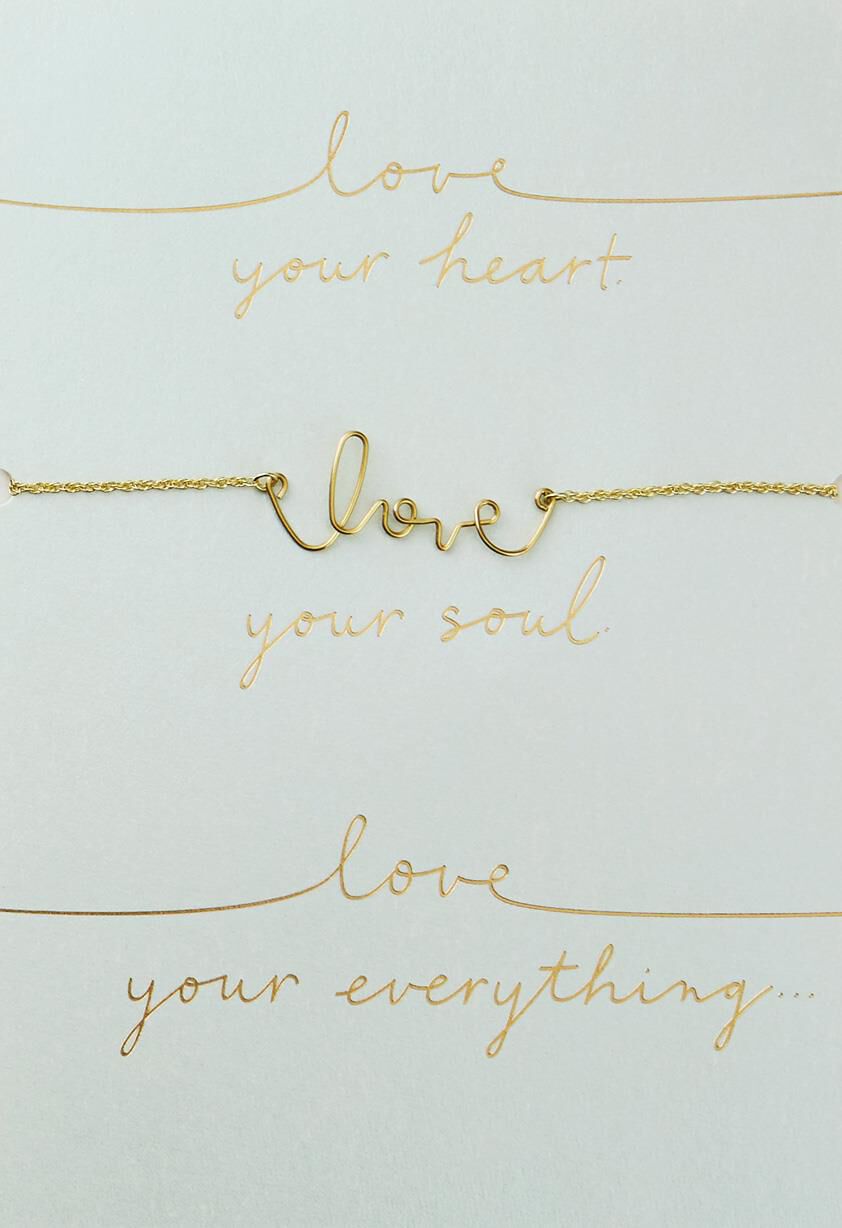 love
your heart.
love
your soul.
love
your everything...